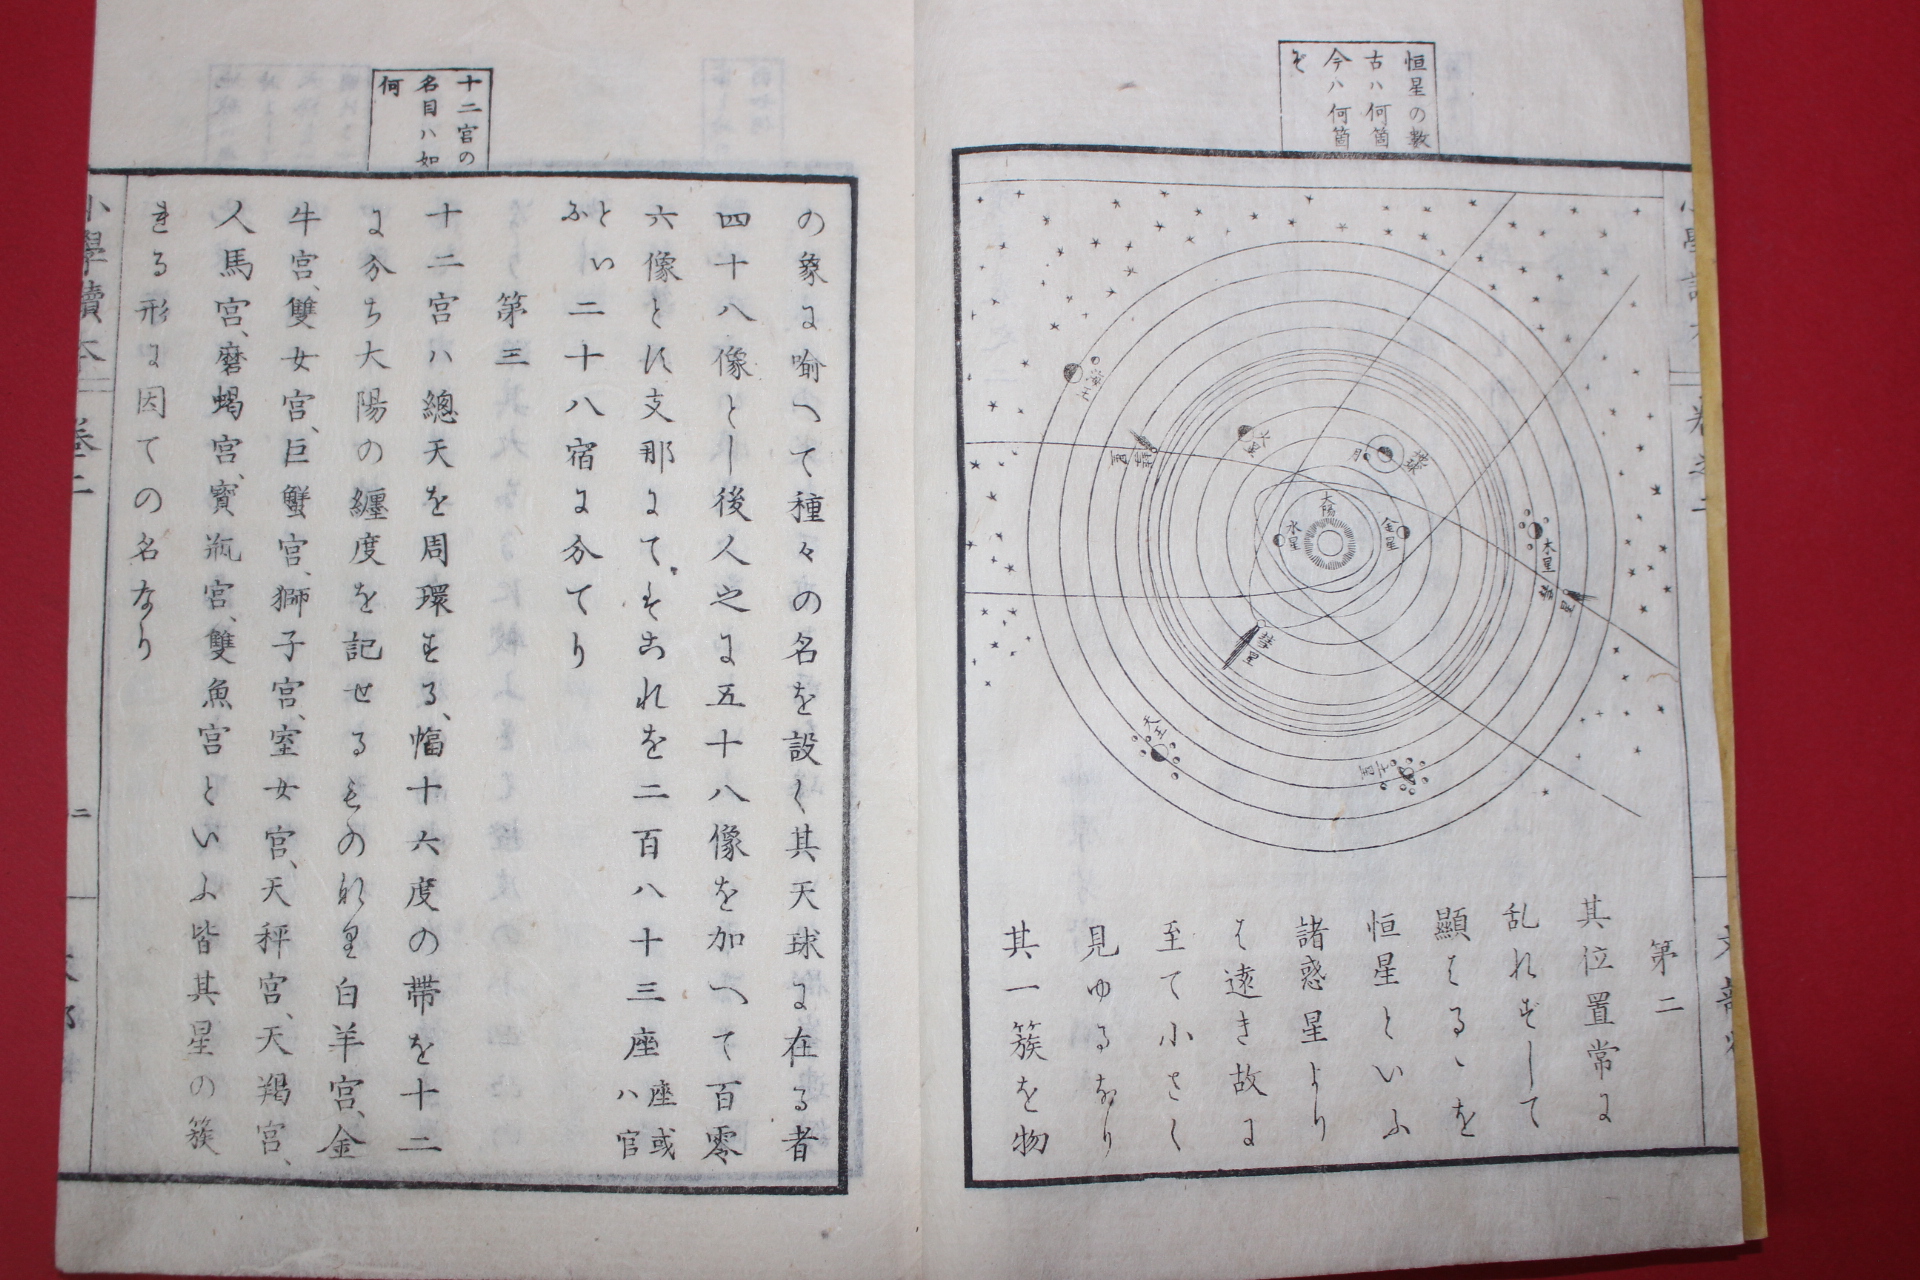 恒星の数
古ハ何箇
今ハ何箇
そ
海王
火星
月
地球
大陽
水星
金星
木星
彗星
彗星
彗星
天王
土星
第二
其位置常に
乱れずして
顯はるゝを
恒星といふ
諸惑星より
は遠き故に
至て小さく
見ゆるなり
其一簇を物
の象に喻へて種々の名を設く其天球に在る者
四十八像とし後人之に五十八像を加へて百零
六像とす支那にてもこれを二百八十三座座或ハ官
といふ二十八宿に分てり
第三
十二宮の
名目ハ如
何
十二宮ハ總天を周環する、幅十六度の帯を十二
に分ち大陽の纏度を記せるものなり白羊宮、金
牛宮、雙女宮、巨蟹宮、獅子宮、室女宮、天秤宮、天羯宮、
人馬宮、磨蝎宮、寳瓶宮、雙魚宮といふ皆其星の簇
まる形に因ての名なり
小學讀本
卷二
二